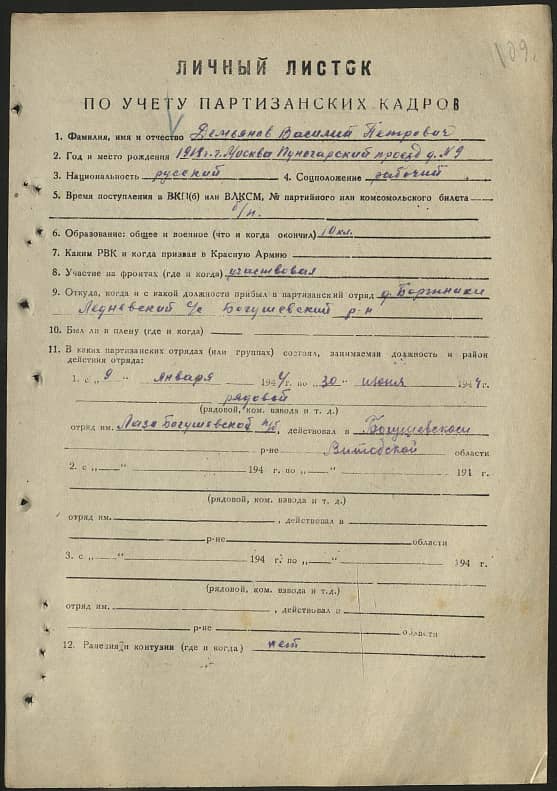 109.
ЛИЧНЫЙ ЛИСТОК
ПО УЧЕТУ ПАРТИЗАНСКИХ КАДРОВ
1. Фамилия, имя и отчество Демьянов Василий Петрович
2. Год и место рождения 1918 г. г. Москва проезд д. №9
3. Национальность русский 4. Соцположение рабочий
5. Время поступления в ВКП(б) или ВЛКСМ, № партийного или комсомольского билета
б/п.
6. Образование: общее и военное (что и когда окончил) 10 кл.
7. Каким РВК и когда призван в Красную Армию
8. Участие на фронтах (где и когда) участвовал
9. Откуда, когда и с какой должности прибыл в партизанский отряд д.
Ледневский с/с Богушевский р-н
10. Был ли в плену (где и когда)
11. В каких партизанских отрядах (или группах) состоял, занимаемая должность и район
действия отряда:
1. с „9" января 1944 г. по „30" июня 1944 г.
рядовой
(рядовой, ком. взвода и т. д.)
отряд им. Лазо Богушевской п/б, действовал в Богушевском
р-не Витебской области
2. с „ " 194 г. по „ " 191 г.
(рядовой, ком. взвода и т. д.)
отряд им. , действовал в
р-не области
3. с „ " 194 г. по „ " 194 г.
(рядовой, ком. взвода и т.д.)
отряд им. , действовал в
р-не области
12. Ранения и контузии (где и когда) нет